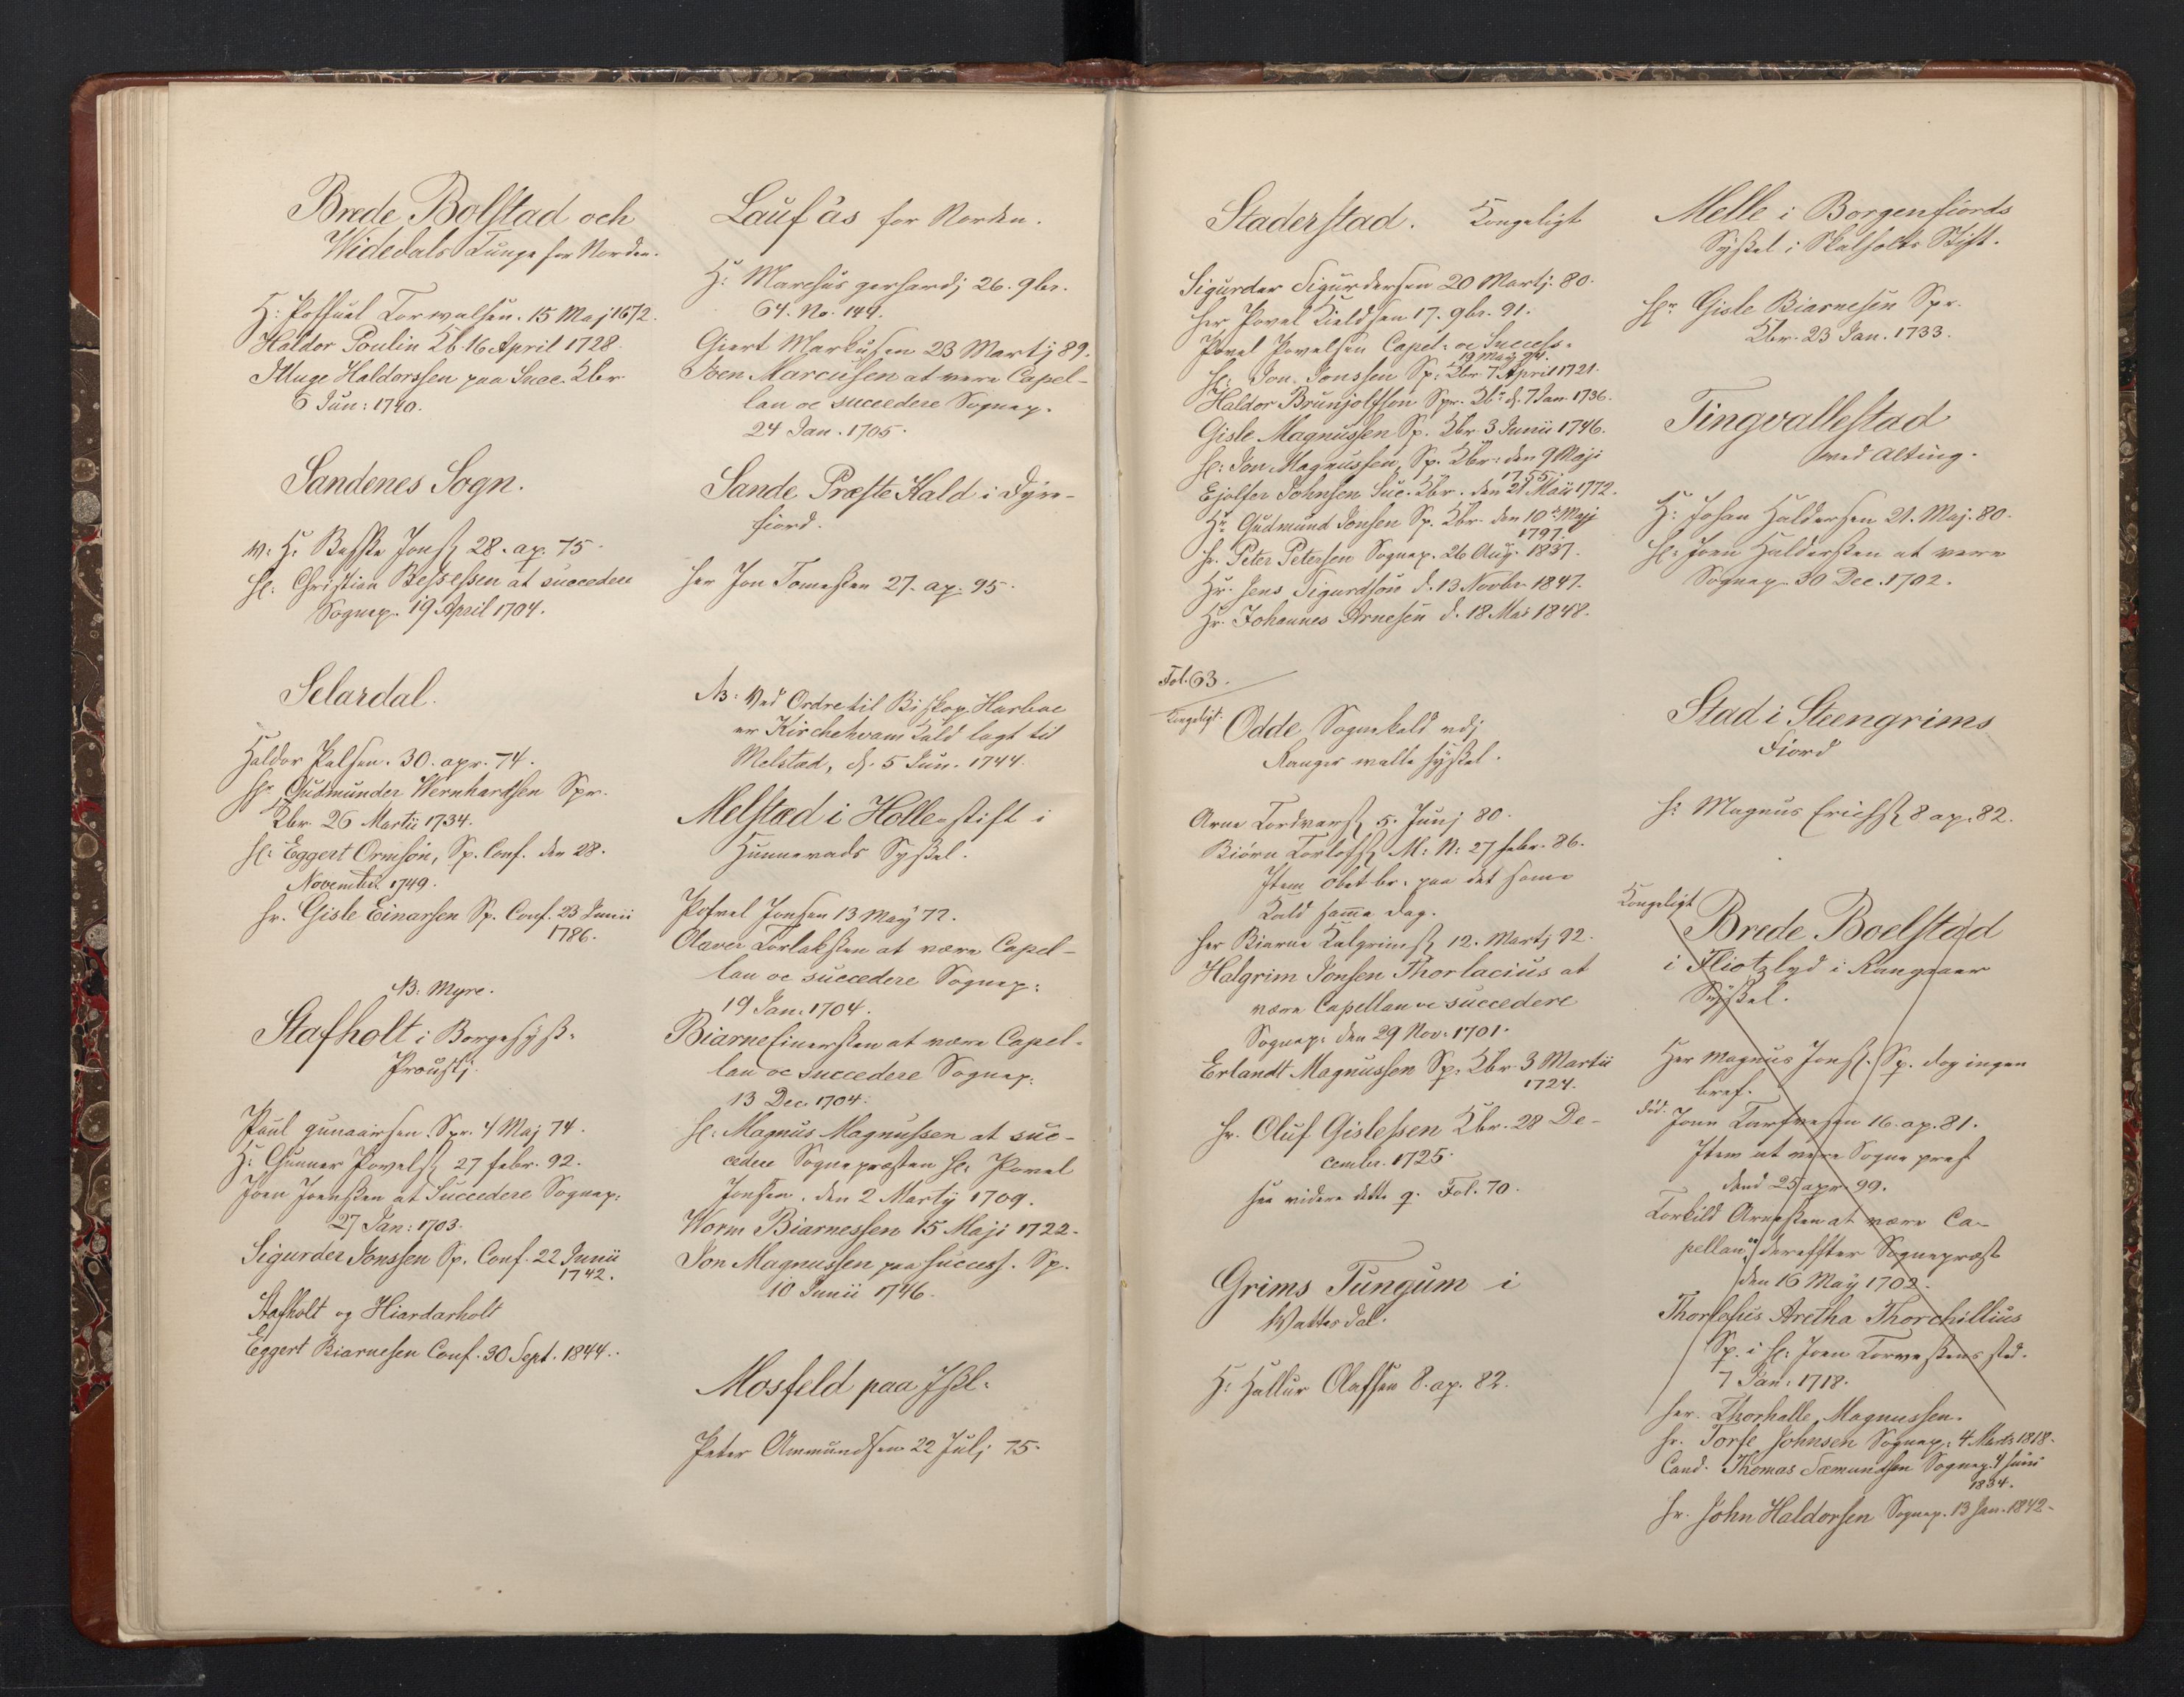 Brede Bolstad och
Widedals Tunge for Norden.
H: Poffuel Torwalsen. 15 Maj 1672.
Haldor Poulin Kb. 16 April 1728.
Illuge Haldorssen paa Succ. Kbr
6 Jun: 1740.
Sandenes Sogn.
V. H. Besse Jonss 28. ap. 75
Hl: Christian Bessessen at succedere
Sognep. 19 April 1704.
Selardal.
Haldor Palsen. 30. apr. 74.
Hr Gudmunder Wernhardsen Spr.
Kbr. 26 Martii 1734.
Hl: Eggert Ormsøn, Sp. Conf. den 28.
November 1749.
Hr. Gisle Einarsen Sp. Conf. 23 Junii
1786.
NB: Myre.
Stafholt i Borgesyss:
Proustj.
Paul gunaarsen. Spr. 4 Maj 74.
H: Gunner Powelss 27 febr. 92.
Joen Joenssen at Succedere Sognep:
27 Jan: 1703.
Sigurder Jonssen Sp. Conf. 22 Junii
1742.
Stafholt og Hiardarholt
Eggert Biarnesen Conf. 30 Sept. 1844.
Laufås for Norden.
H: Marchus gerhardj 26. 9br.
64. No. 144.
Giert Markusen 23 Martj 89.
Sven Marcusen at være Capel-
lan oc succedere Sognep.
24 Jan. 1705.
Sande Præste Kald i Dyre-
fiord.
Her Jon Tomessen 27. ap. 95.
NB: Ved Ordre til Biskop Harboe
er Kirchehvam Kald lagt til
Melstad, d. 5 Jun. 1744.
Melstad i Holle-stift i
Hunnevads Syssel.
Pofvel Jonsen 13 May 72.
Olaver Torlakssen at være Capel-
lan oc succedere Sognep:
19 Jan. 1704.
Biarne Einerssen at være Capel-
lan oc succedere Sognep:
13 Dec. 1704.
Hl: Magnus Magnussen at suc-
cedere Sognepræsten Hl: Powel
Jonssen. den 2 Marty 1709.
Worm Biarnessen 15 Maji 1722.
Jon Magnussen paa success. Sp.
10 Junii 1746.
Mosfeld paa Issl:
Peter Ammundsen 22 Julj 75.
Staderstad. Kongeligt
Sigurder Sigurdersen 20 Martj. 80.
Her Powel Kieldsen 17. 9br. 91.
Powel Powelsen Capel: oc Success.
19 Maij 94.
Hl: Jon Jonssen Sp: Kbr 7 April 1721.
Haldor Brunjolfson Spr. Kbr d. 7 Jan. 1736.
Gisle Magnussen Sp. Kbr 3 Junii 1746.
Hl: Jon Magnussen Sp. Kbr: den 9 Maji
1755.
Ejolfer Johnsen Suc. Kbr. den 21 Maii 1772.
Hr. Gudmund Jonsen Sp. Kbr. den 10de Maji
1797.
Hr. Peter Petersen Sognep. 26 Aug. 1837.
Hr. Jens Sigurdson d. 13 Novbr 1847.
Hr. Johannes Arnesen d. 18 Mai 1848.
Fol. 63.
Kongeligt.
Odde Sognekald udj
Ranger walle Syssel.
Arne Tordvarss 5. Junj 80.
Biørn Torlofss M: N: 27 febr. 86.
Item obet br. paa det same
Kald same dag.
Her Biarne Halgrimss 12. Martj 92.
Halgrim Jonsen Thorlacius at
være Capellan oc succedere
Sognep: den 29 Nov: 1701.
Erlandt Magnussen Sp. Kbr. 3 Martii
1724.
Hr. Oluf Gislessen Kbr. 28 De-
cember. 1725.
See videre dette p. Fol. 70.
Grims Tungum i
Wattes dal.
H: Hallur Olafsen 8. ap. 82.
Melle i Borgenfiords
Syssel i Skalholts Stift.
Hr. Gisle Biarnesen Spr.
Kbr. 23 Jan. 1733.
Tingvallestad
ved alting.
H: Johan Haldorsen 21. Maj. 80.
Hl: Joen Halderssen at være
Sognep 30 Dec. 1702.
Stad i Steengrims
Fiord
H: Magnus Erichss 8 ap. 82.
Kongeligt
Brede Boelstad
i Fliotzlyd i Rangaaer
Syssel.
Her Magnus Jonss. Sp. dog ingen
bref.
død. Joen Torfvesen 16. ap. 81.
Item at være Sogne præst
dend 25 apr. 99.
Torkild Arnessen at være Ca-
pellan oc dereffter Sognepræst
den 16 May 1702.
Thorleifus Aretha Thorchillius
Sp. i Hl: Joen Torwessens sted.
7 Jan. 1718.
Her. Thorhalle Magnussen.
Hr. Torfe Johnsen Sognep. 4 Marts 1818.
Cand. Thomas Sæmundsen Sognep. 4 Juni
1834.
Hr. John Haldorsen Sognep. 13 Jan. 1842.